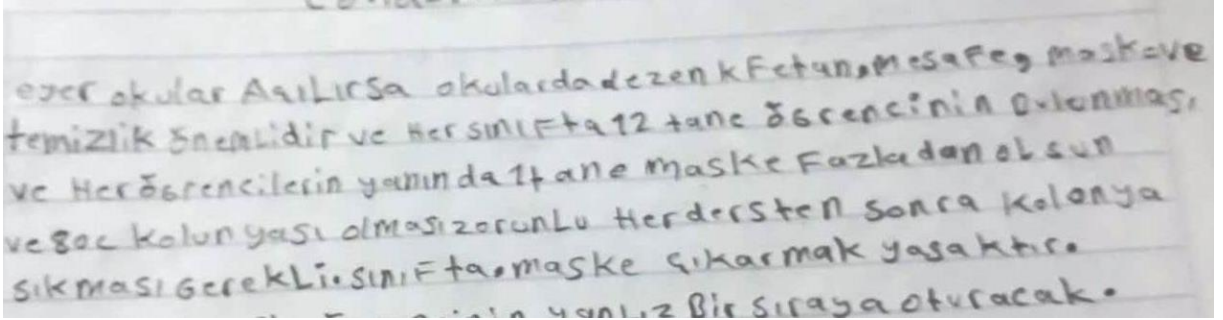 eger okular Açılırsa okularda dezenkfetan, mesafe, maske ve
temizlik önemlidir ve Her sınıfta 12 tane öğrencinin bulunması
ve Her öğrencilerin yanında 1 tane maske Fazladan olsun
ve 80c kolunyası olması zorunlu Herdersten sonra kolonya
sıkması Gerekli. sınıfta. maske çıkarmak yasaktır.
yanlız Bir sıraya oturacak.